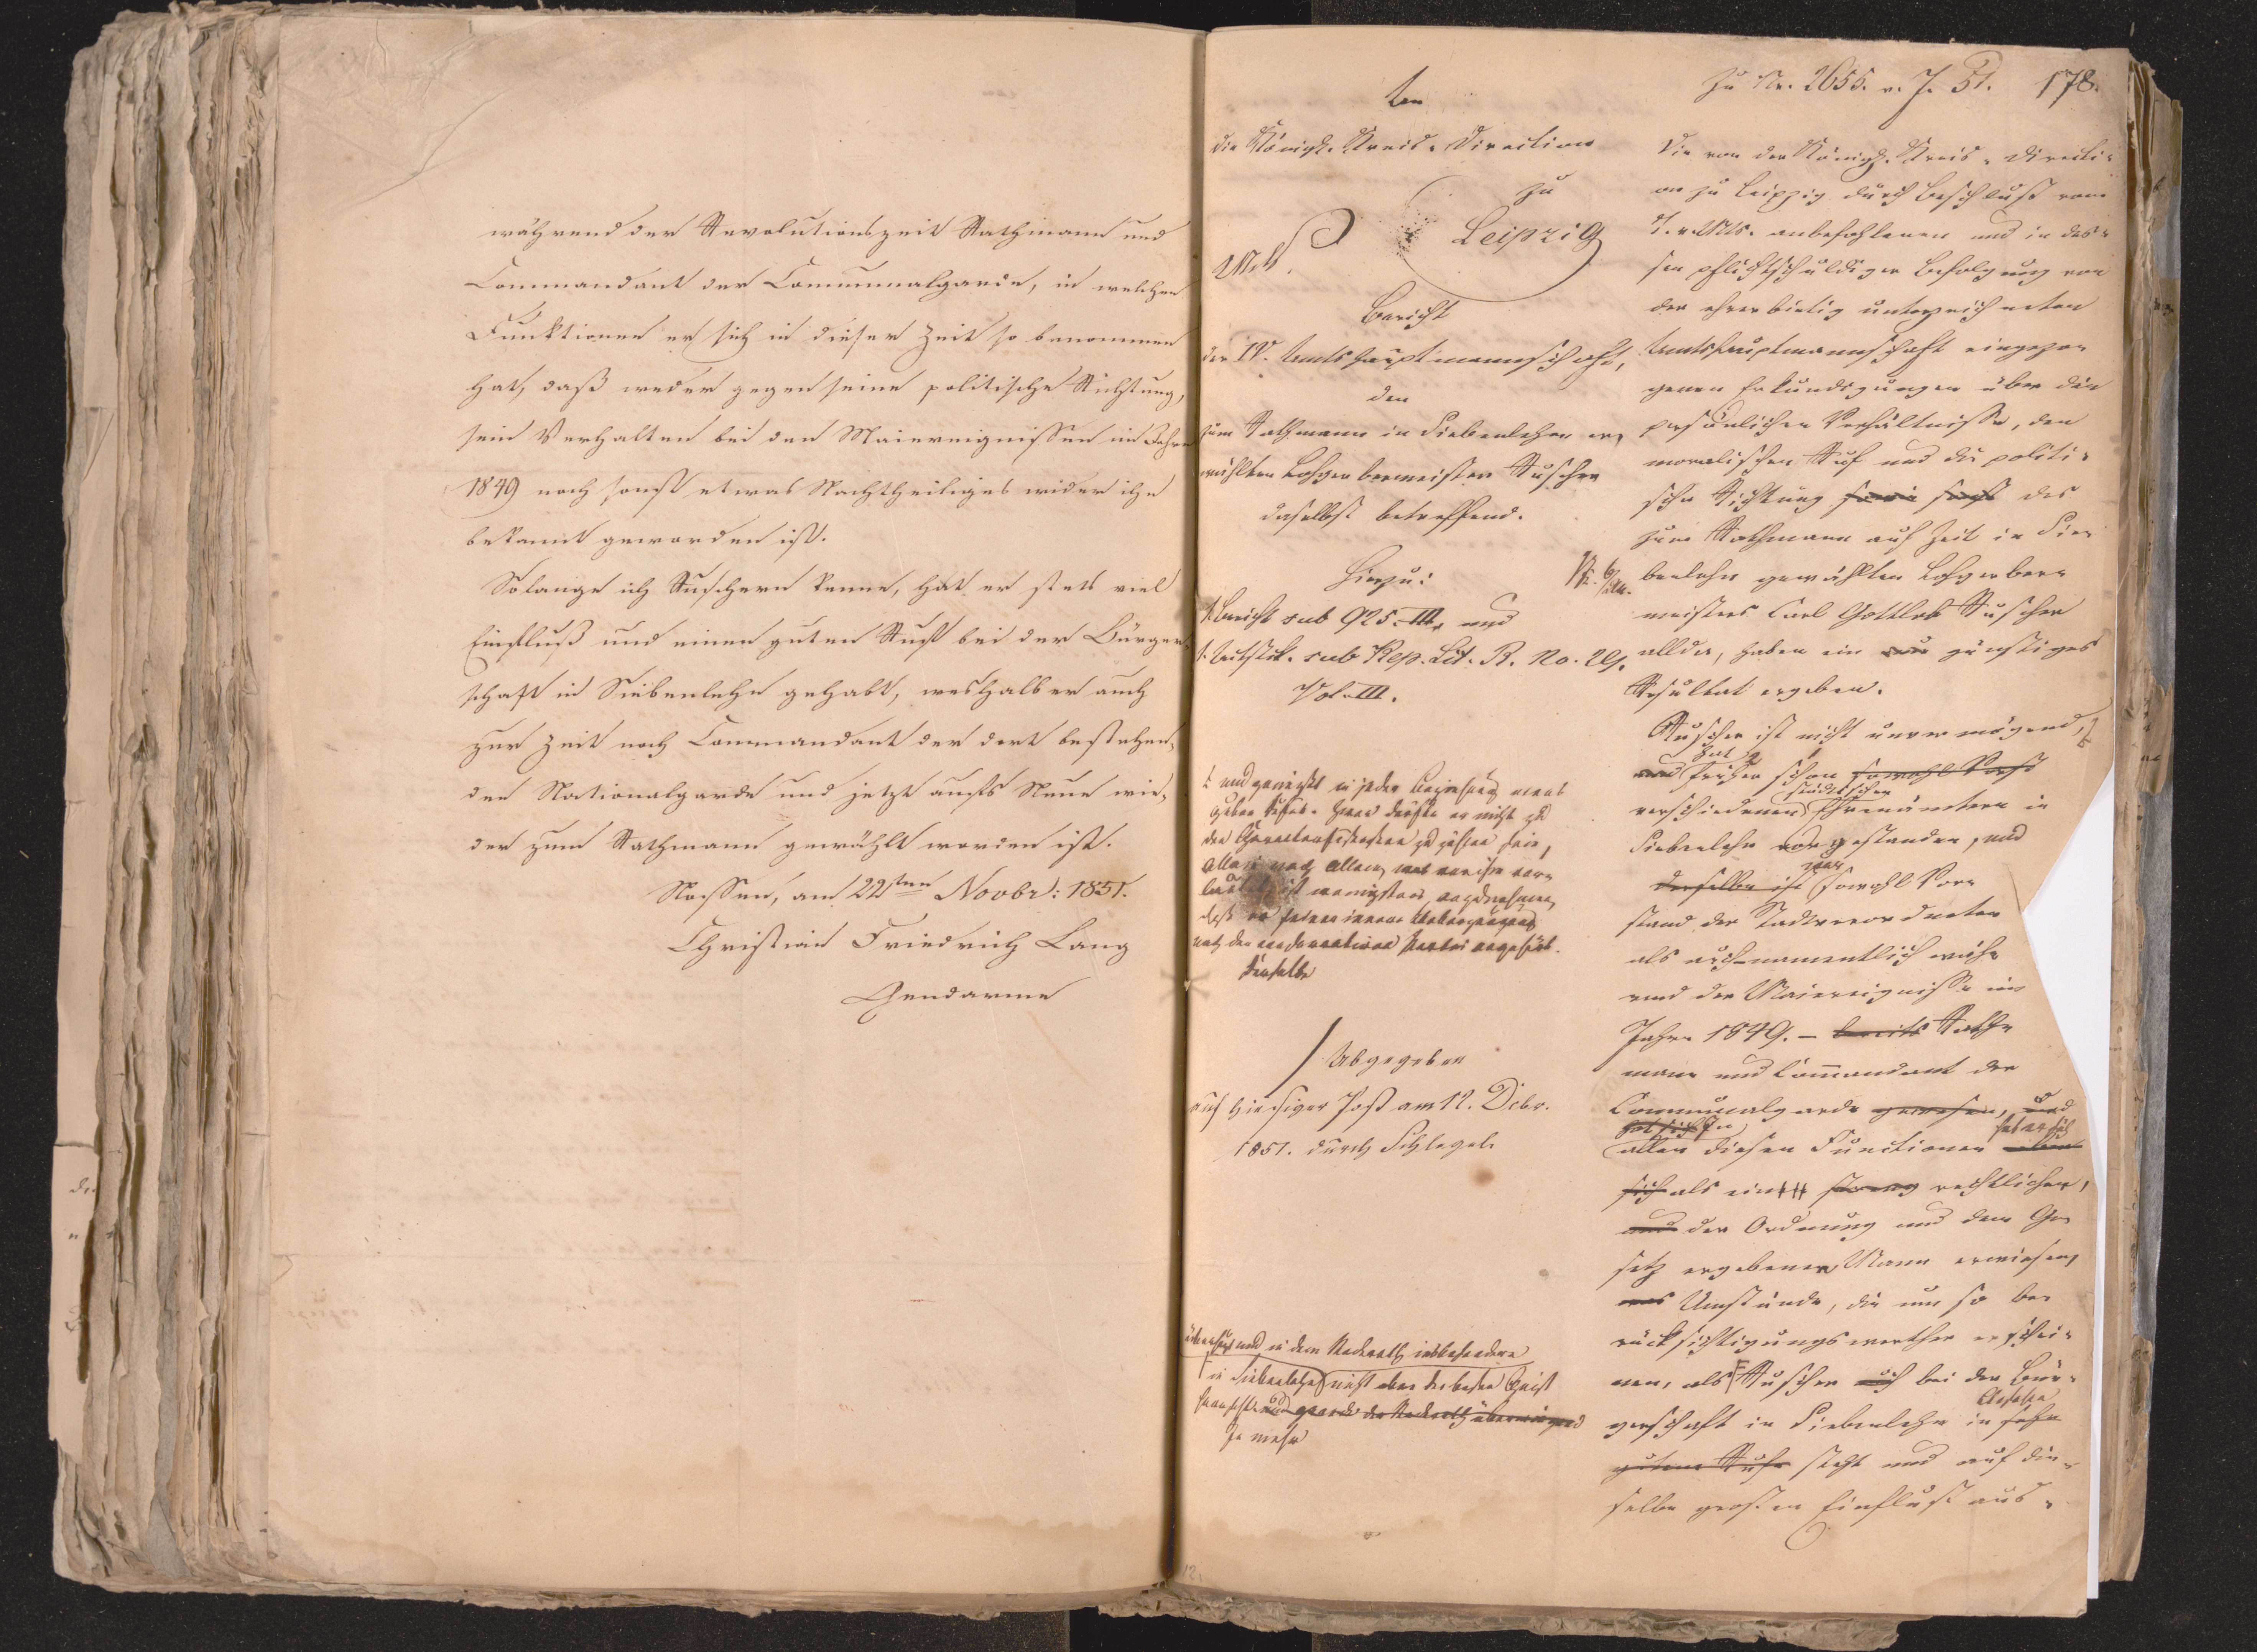 während der Revolutionszeit Rathmann und
Commandant der Communalgarde, in welchen
Funktionen er sich in dieser Zeit so benommen
hat, daß weder gegen seine politische Richtung,
sein Verhalten bei den Maiereignissen im Jahre
1849 noch sonst etwas Nachtheiliges wider ihn
bekannt geworden ist.
Solange ich Ruschern kenne, hat er stets viel
Einfluß und einen guten Ruf bei der Bürger-
schaft in Siebenlehn gehabt, weshalb er auch
zur Zeit noch Commandant der dort bestehen-
den Nationalgarde und jetzt aufs Neue wie-
der zum Rathmann gewählt worden ist.
Nossen, am 22sten Novbr: 1851.
Christian Friedrich Lang
Gendarme
An
die Königl. Kreis-Direction
zu
Leipzig
Bericht
der IV. Amtshauptmannschaft,
den
zum Rathmann in Siebenlehn er-
wählten Lohgerbermeister Ruscher
daselbst betreffend.
Hierzu:
1. Bericht sub 925. III, und
1. Actstck. sub Rep. Lit. R. No. 29.
Vol. III.
und genießt in jeder Beziehung eines
guten Rufes. Zwar dürfte er nicht zu
den zu zählen sein,
allein nach allem, was von ihm
ist wenigstens anzunehmen,
daß er seiner innern Ueberzeugung
nach der conservativen Partei angehört.
Derselbe
Abgegeben
auf hiesiger Post am 12. Dcbr.
1851. durch Schlegel.
überhaupt und in dem Stadtrath insbesondere
in Siebenlehn nicht eben der beste Geist
herrscht und gerade der Stadtrath überwiegend
Je mehr
Zu Nr. 2655. v. J. 51. 178.
Die von der Königl. Kreis-Directi-
on zu Leipzig durch Beschluß vom
7. v. Mts. anbefohlenen und in des-
sen pflichtschuldiger Befolgung von
der ehrerbietig unterzeichneten
Amtshauptmannschaft eingezo-
genen Erkundigungen über die
persönlichen Verhältnisse, den
moralischen Ruf und die politi-
sche Richtung des
zum Rathmann auf Zeit in Sie-
benlehn gewählten Lohgerber-
meisters Carl Gottlob Ruscher
allda, haben ein günstiges
Resultat ergeben.
Ruscher ist nicht unvermögend,
hat
und früher schon sowohl
städtischen
verschiedenen Ehrenämtern in
Siebenlehn vorgestanden, und
war
derselbe ist sowohl Vor-
stand der Stadtverordneten
als auch namentlich wäh-
rend der Maiereignisse im
Jahre 1849. – bereits Rath-
mann und Commandant der
Communalgarde gewesen, und
hat sich In hat er sich
allen diesen Functionen
sich als ein streng rechtlicher,
und der Ordnung und dem Ge-
setz ergebener Mann erwiesen,
Umstände, die um so be-
rücksichtigungswerther erschei-
nen, als Ruscher auch bei der Bür-
Ansehen
gerschaft in Siebenlehn in sehr
gutem Rufe steht und auf die-
selbe großen Einfluß aus-